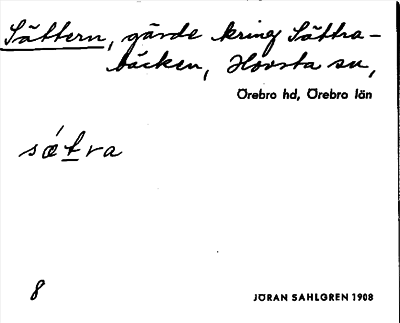 Sättern, gärde kring Sättra-
bäcken, Hovsta sn,
Örebro hd, Örebro län
sǽtra
8
JÖRAN SAHLGREN 1908